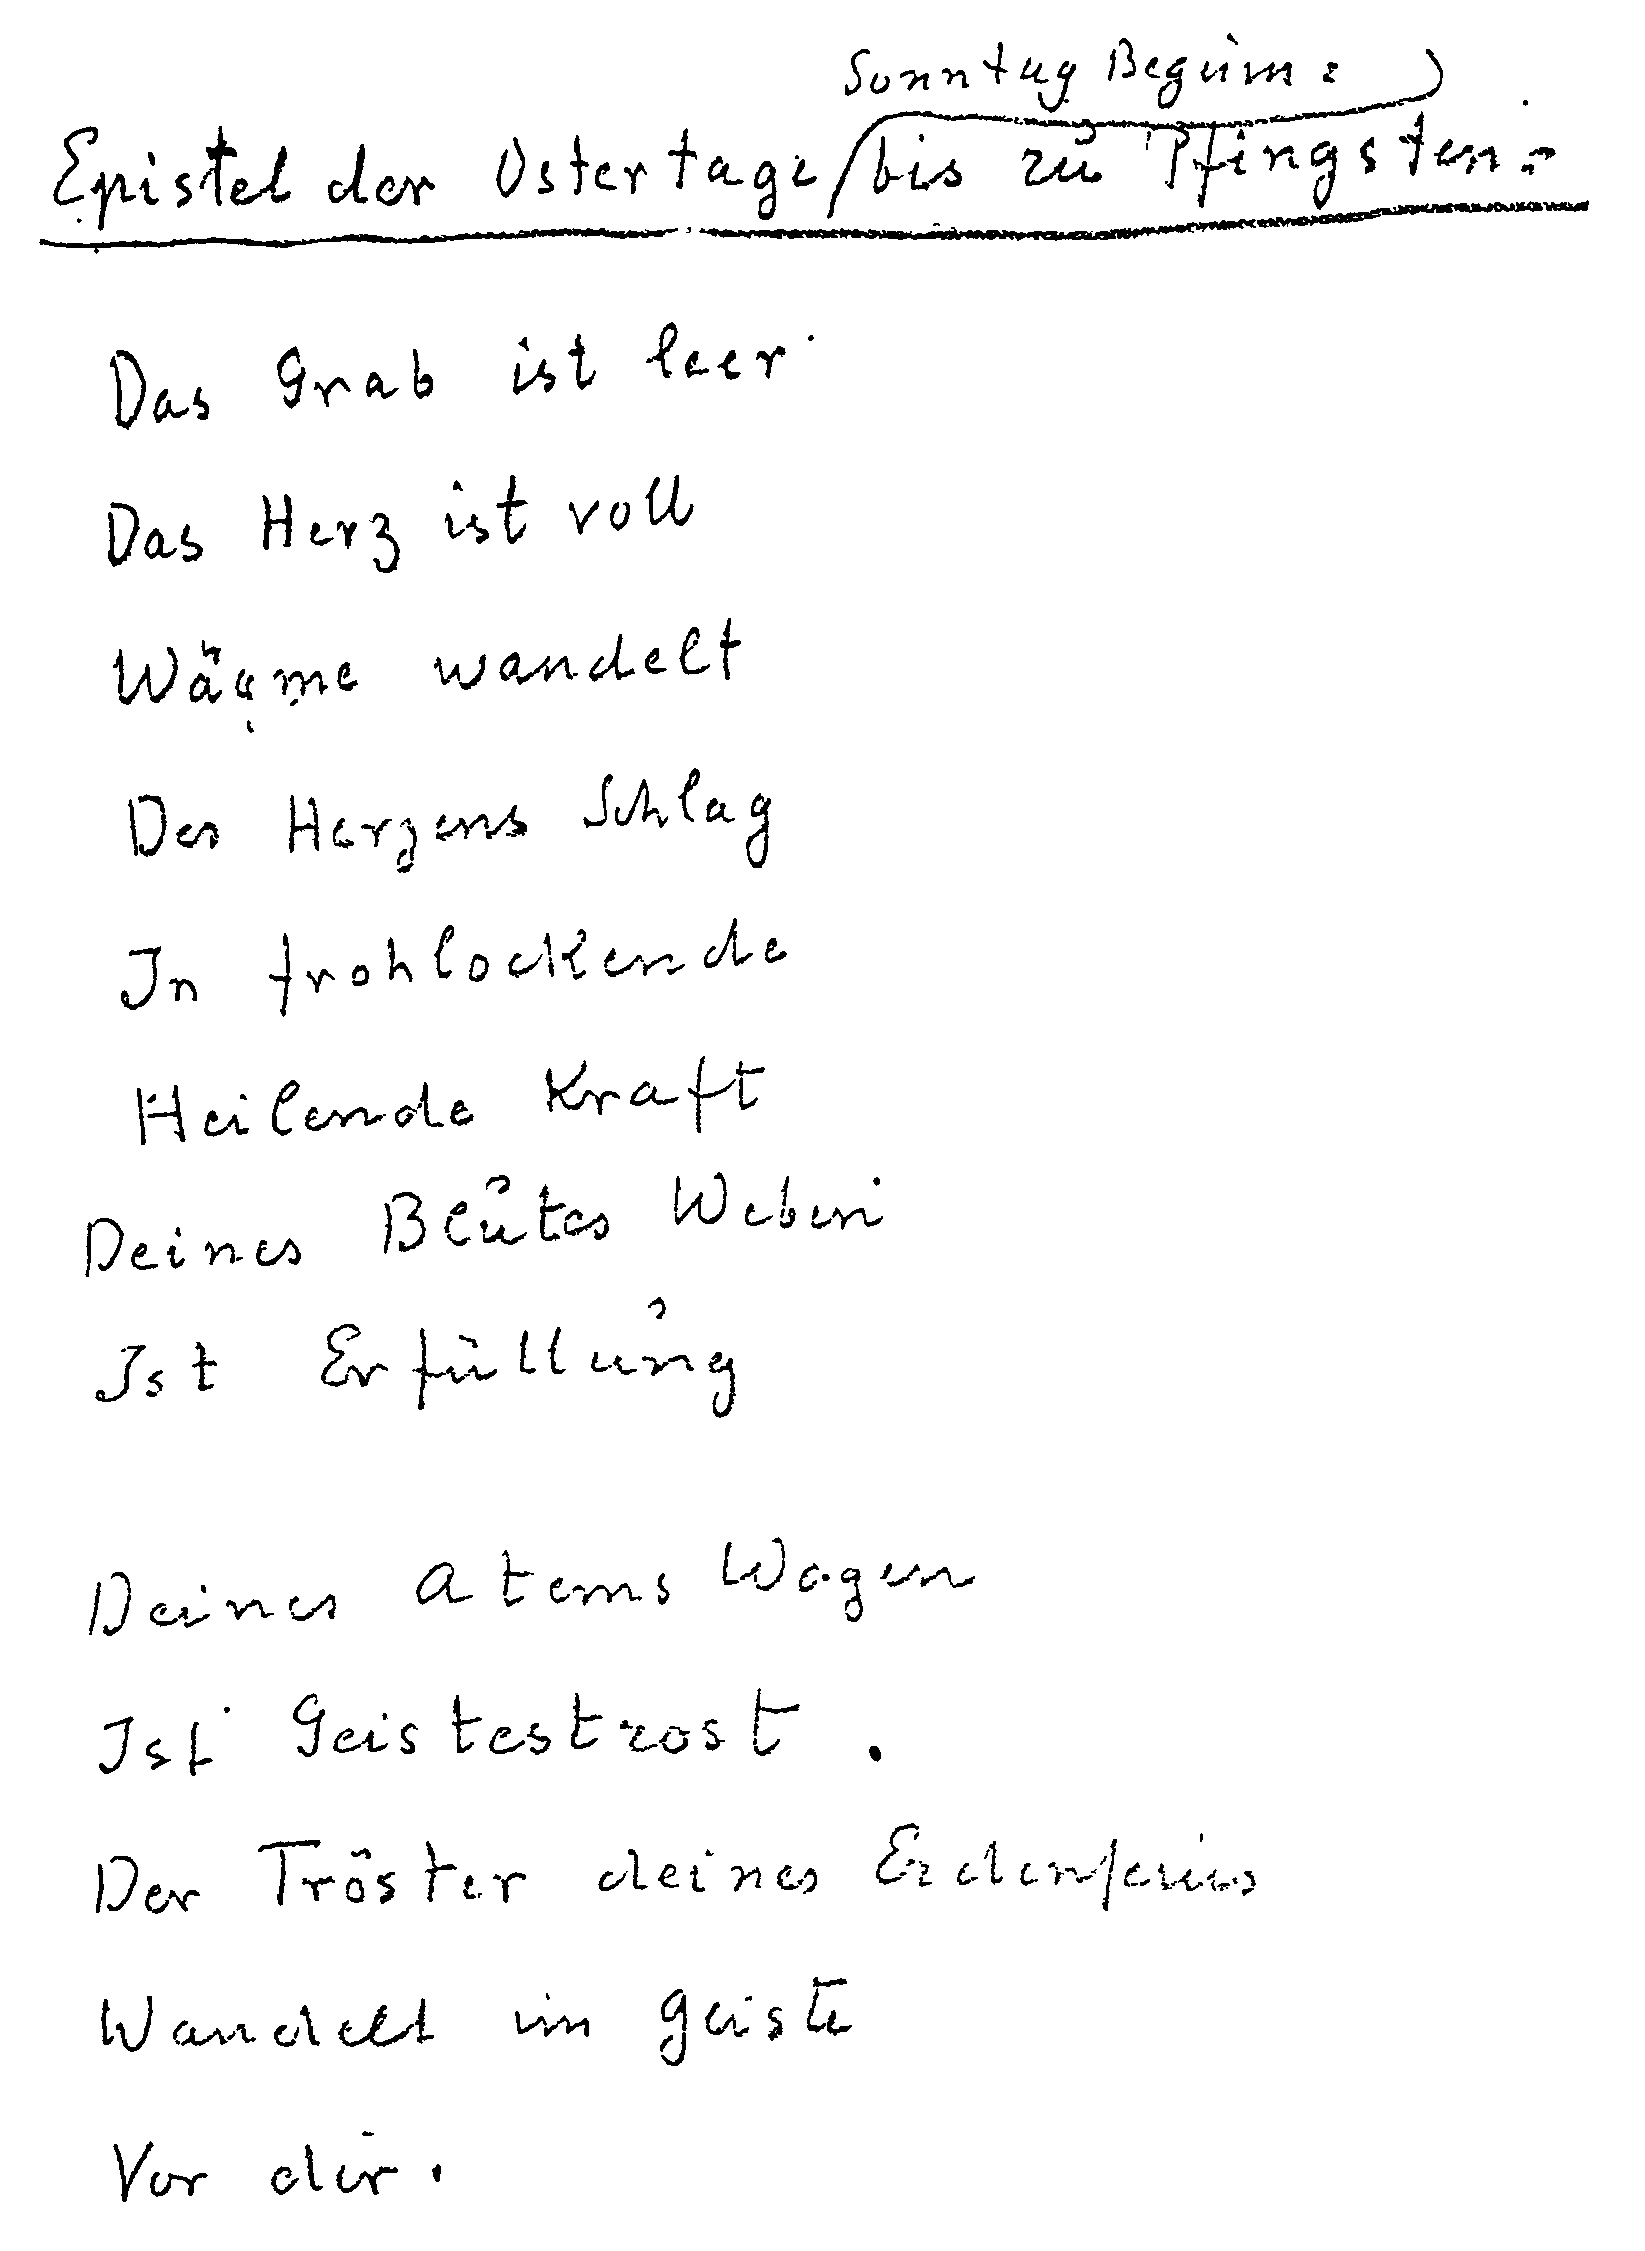 Sonntag Beginn:
Epistel der Ostertage bis zu Pfingsten:
Das Grab ist leer
Das Herz ist voll
Wärme wandelt
Des Herzens Schlag
In frohlockende
Heilende Kraft
Deines Blutes Weben
Ist Erfüllung
Deines Atems Wogen
Ist Geistestrost.
Der Tröster deines Erdenseins
Wandelt im Geiste
Vor dir.